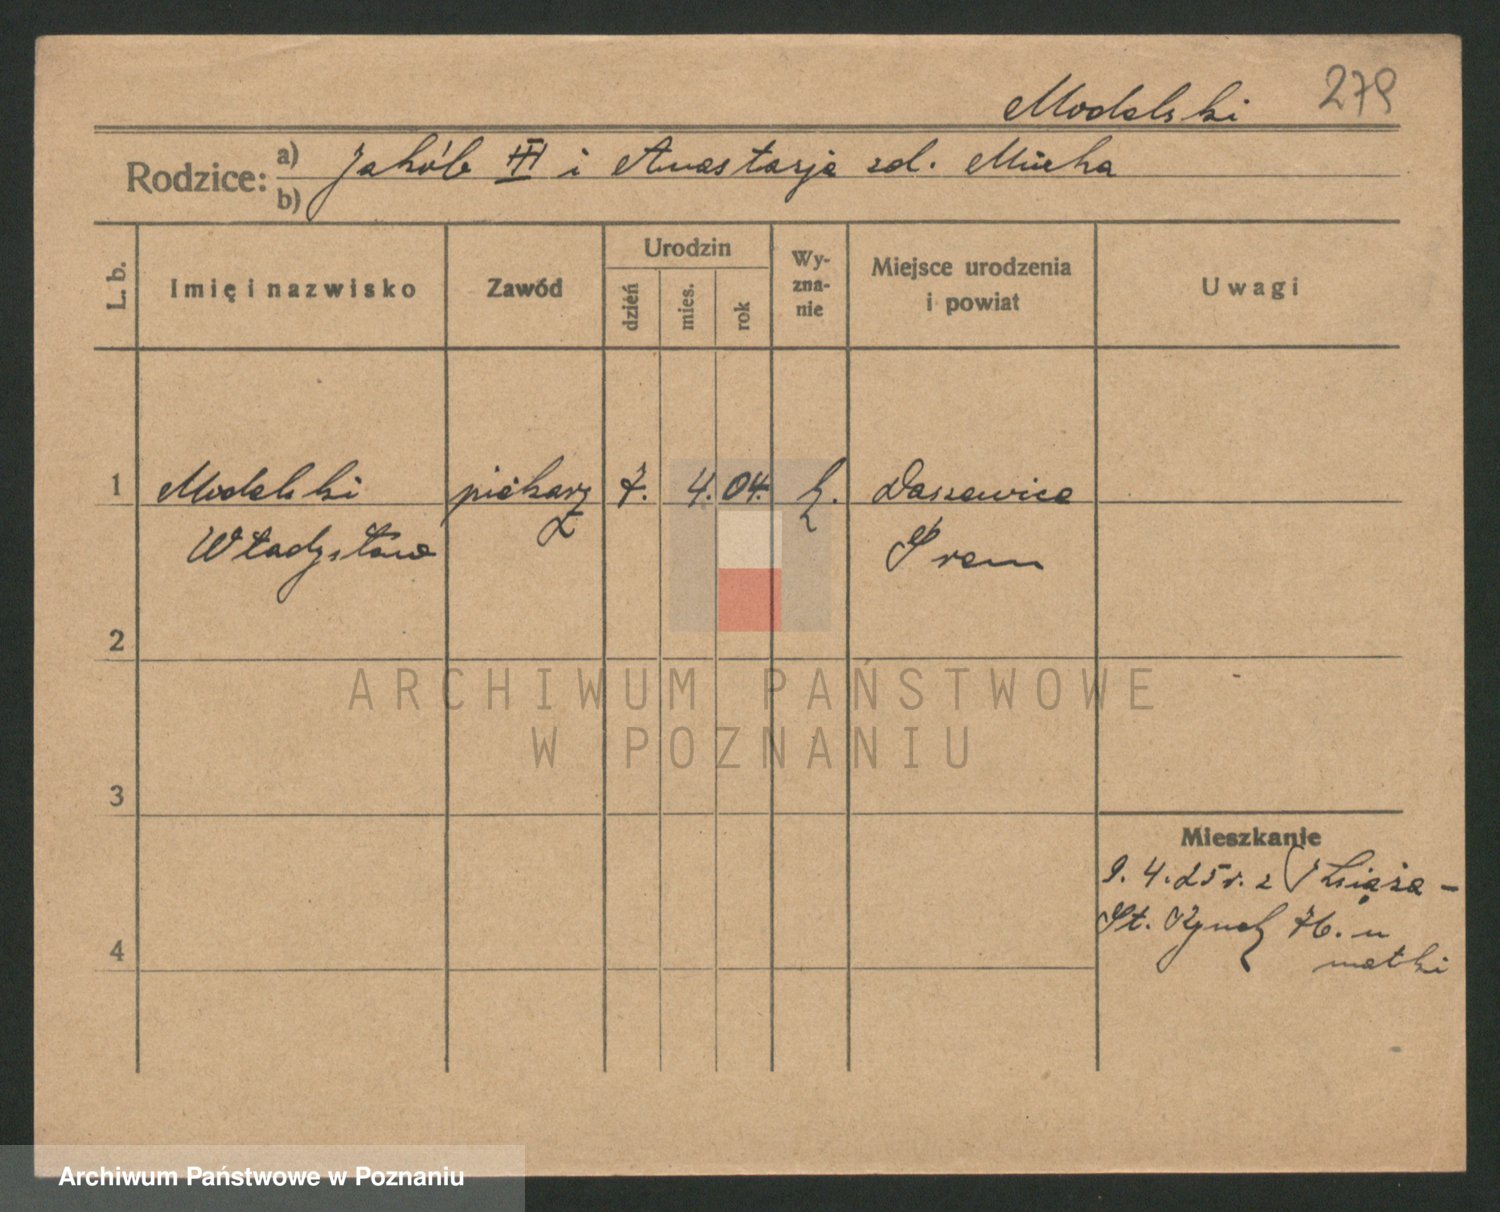 279
Modelski
Rodzice: a) Jakób III i Anastazja zd. Mucha
b)
L. b.
Imię i nazwisko
Zawód
Urodzin
dzień
mies.
rok
Wy-
zna-
nie
Miejsce urodzenia
i powiat
Uwagi
1 Modelski piekarz 7. 4. 04. k. Daszewice
Władysław Śrem
2
3
4
Mieszkanie
9. 4. 25 r. z Książa -
St. Rynek 76. u
matki
ARCHIWUM PAŃSTWOWE
W POZNANIU
Archiwum Państwowe w Poznaniu